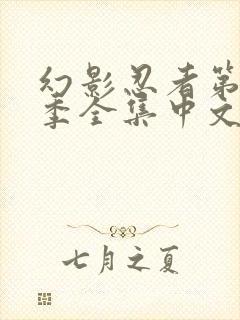 幻影忍者第
季全集中文
七月之夏